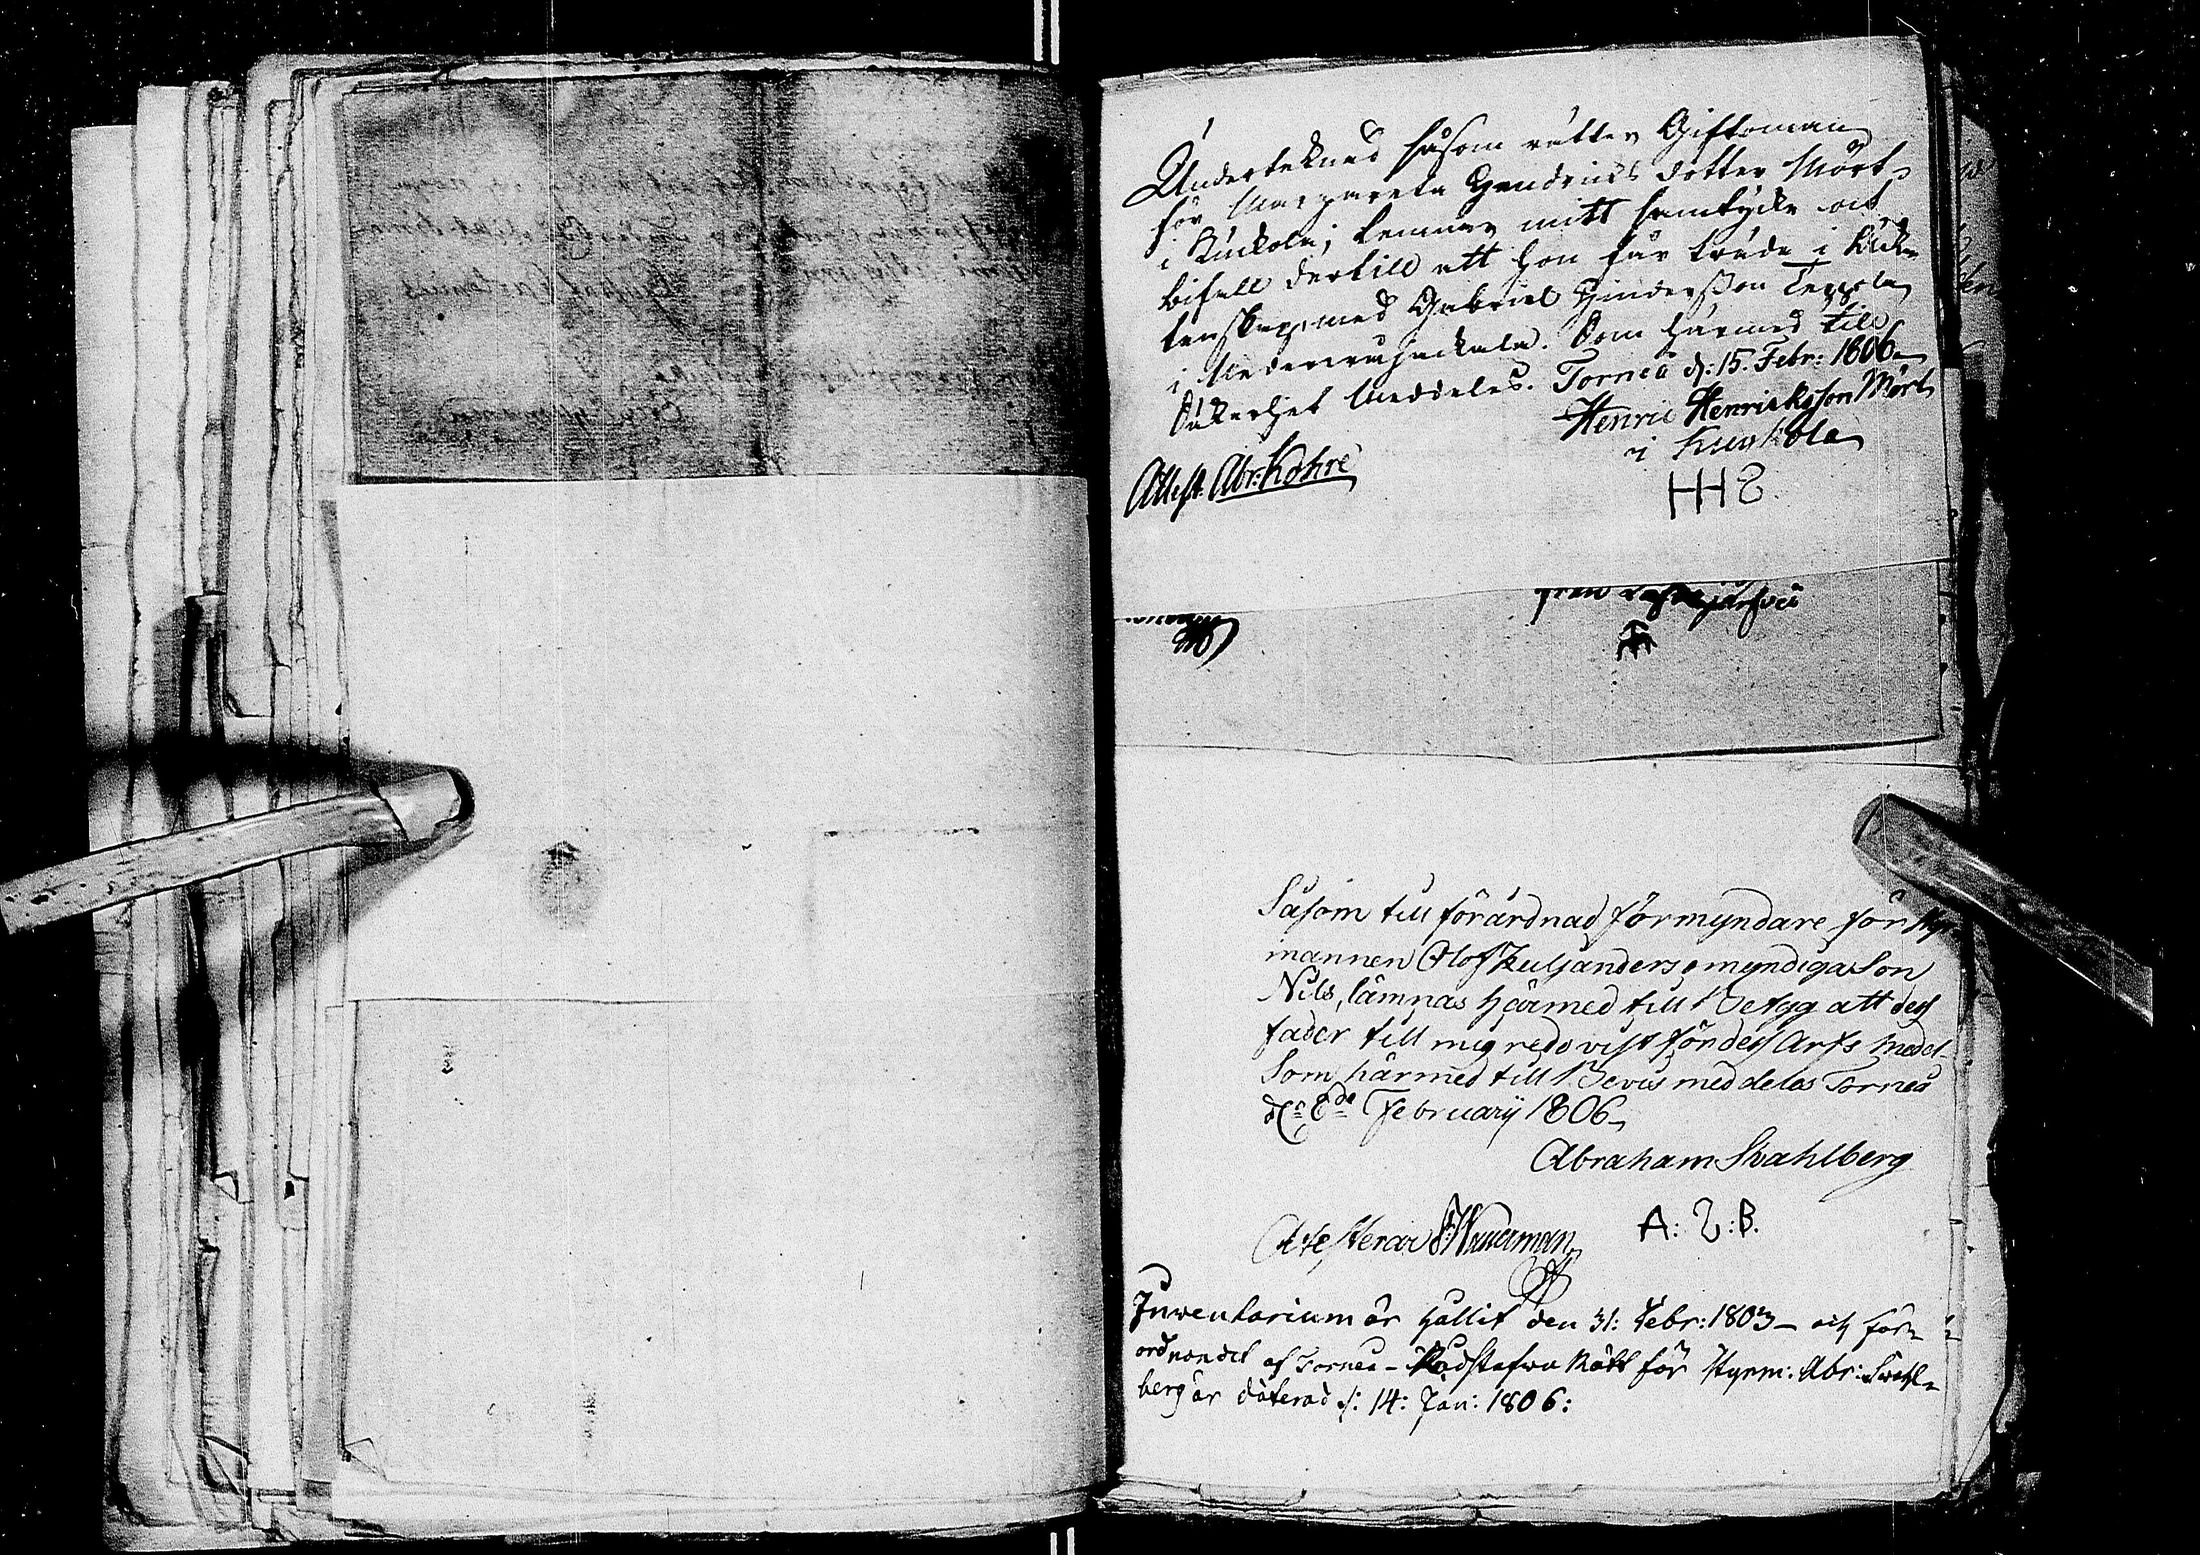 Underteknad såsom rätter Giftoman
för Margareta Hendricks dotter Mört
i Kuckola; lemnar mitt samtycke och
bifall dertill att hon får träda i Äckta
tenskap, med Gabriel Hindersson Teppola
i Nedervojackala. Som härmed till
Säkerhet Meddeles. Torneå d: 15. Febr: 1806
Henric Henricksson Mört
i Kuckola
HHS
Attest. Abr: Kohre
från
Såsom till förärdnad förmyndare för Styr
mannen Olof omyndiga Son
Nils, lämnas härmed till Betyg att dess
fader till mig redovist för dess Arfs medel
Som härmed till Bevis meddelas Torneå
d: 8de February 1806
Abraham Svahlberg
A: S: B.
Atesterar
Inventarium är hållit den 31: Febr: 1803 – och för=
ordnandet af Torneå – Rådstufwu Rätt för Styrm: Abr: Swahl=
berg är daterad d: 14: Jan: 1806: